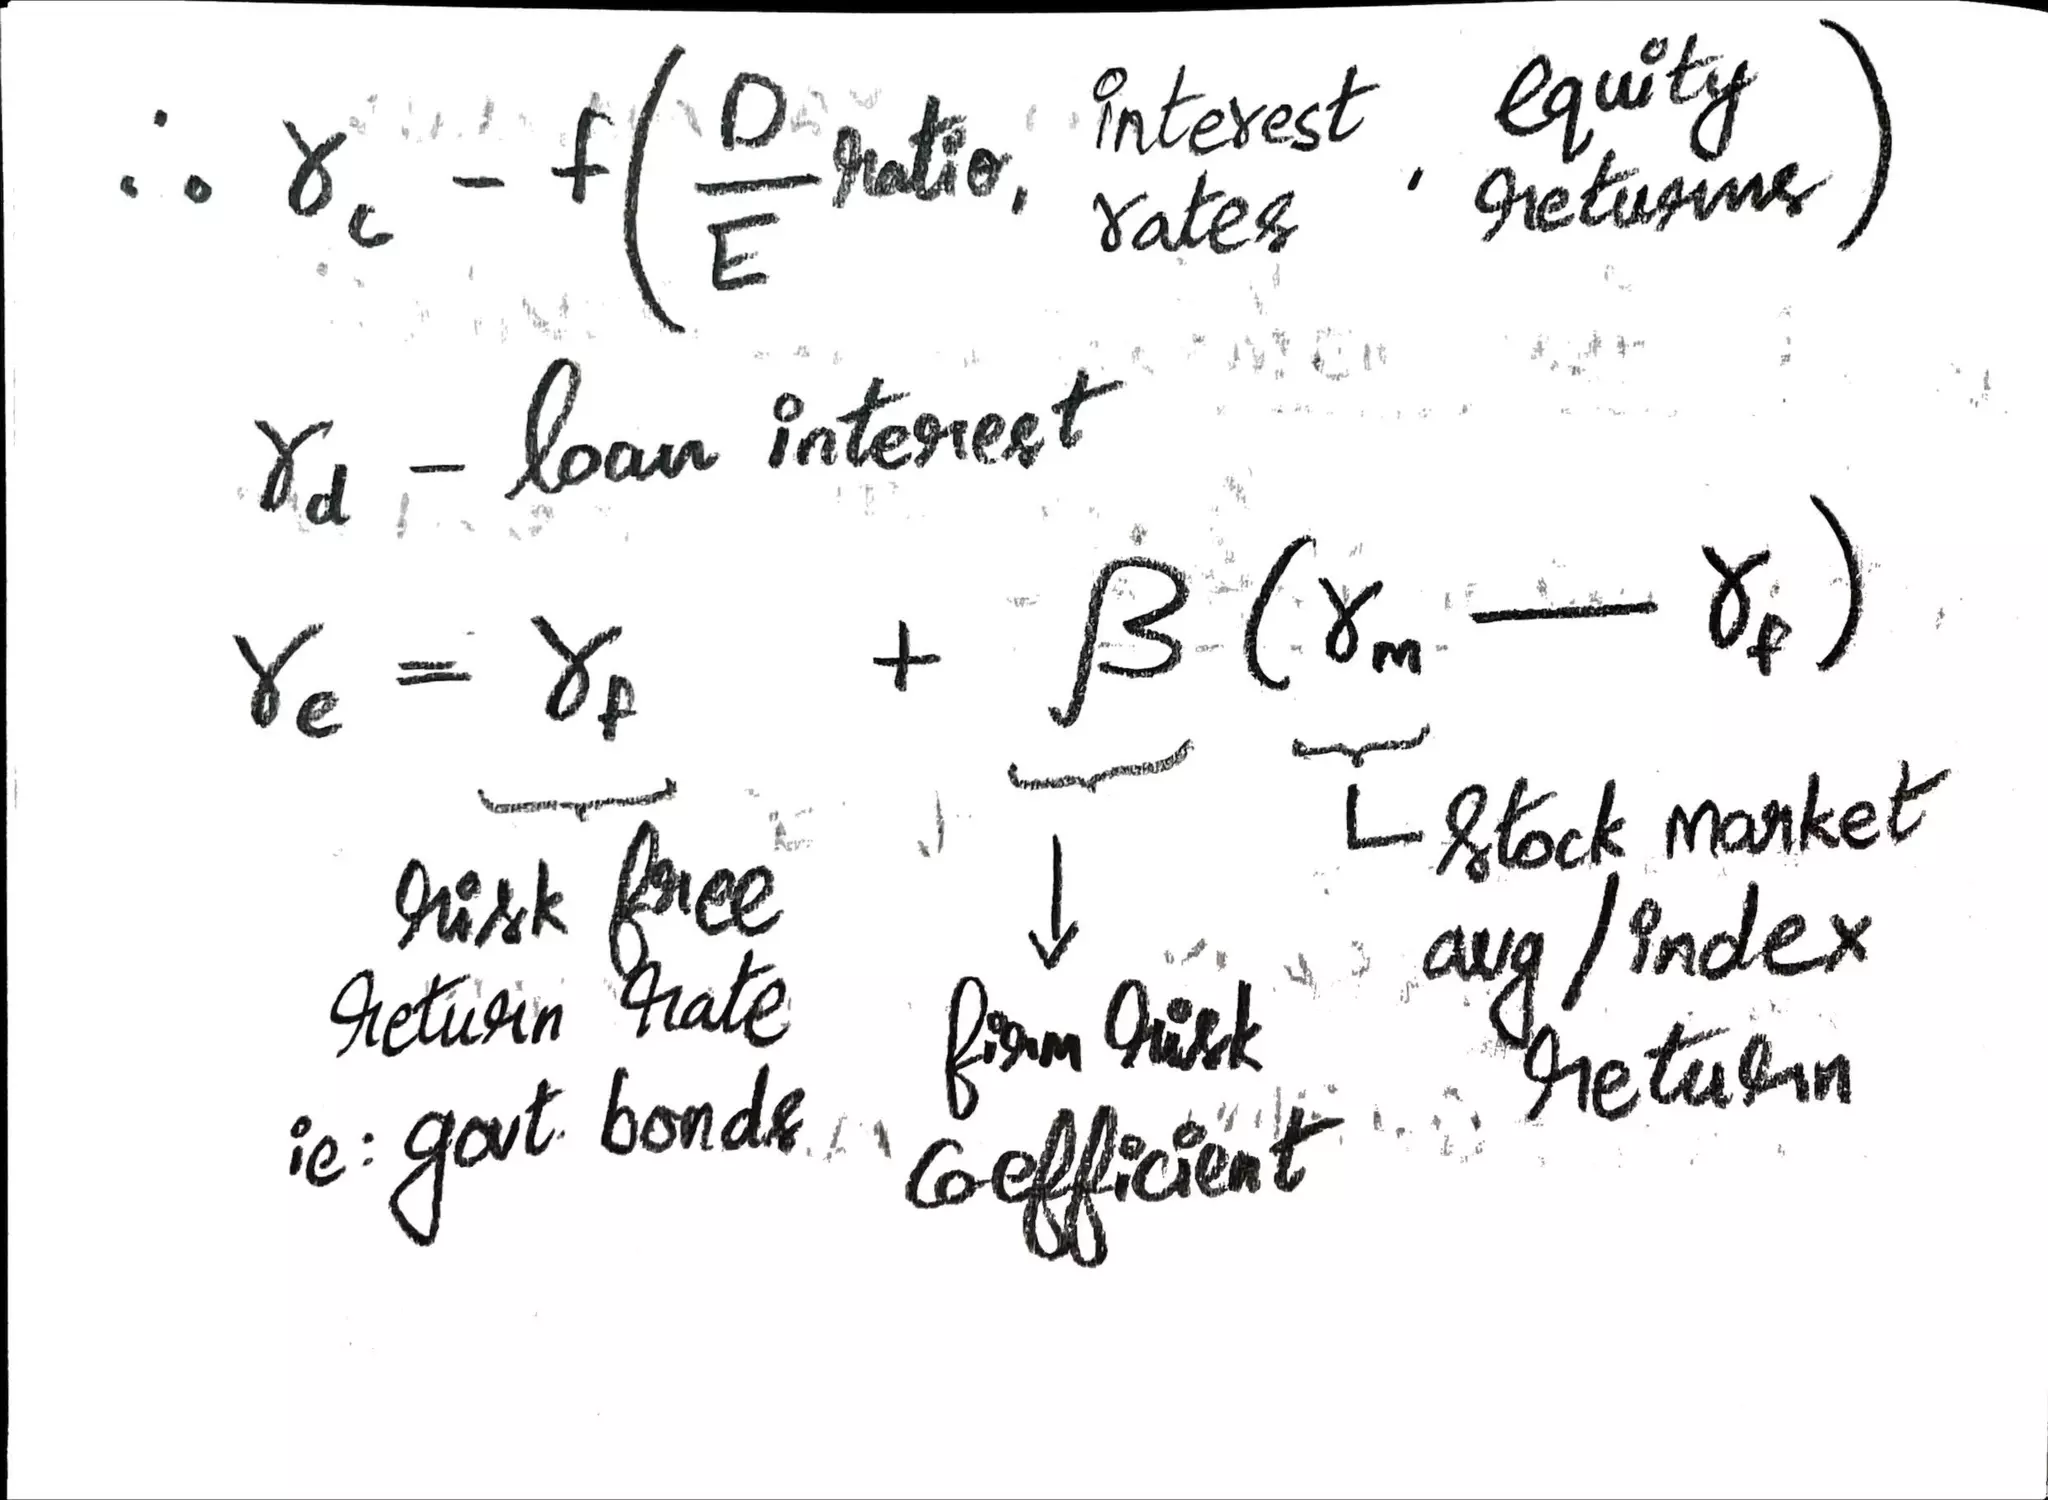 ∴ r_c - f( D/E ratio, interest rates, equity returns )
r_d - loan interest
r_e = r_f + β ( r_m — r_f )
risk free
return rate
ie: govt. bonds
firm risk
coefficient
stock market
avg / index
return